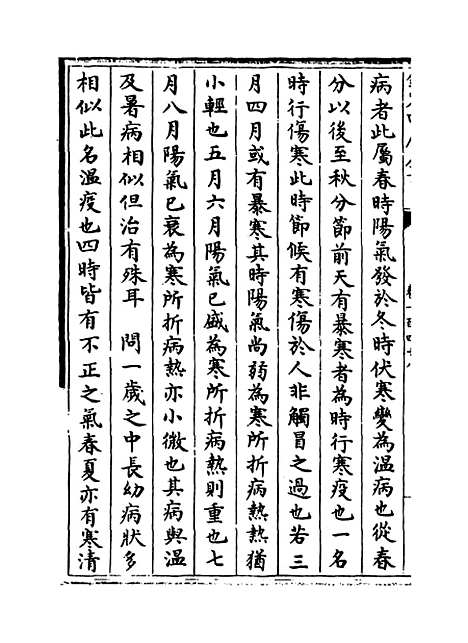 病者此屬春時陽氣發於冬時伏寒變為溫病也從春
分以後至秋分節前天有暴寒者為時行寒疫也一名
時行傷寒此時節候有寒傷於人非觸冒之過也若三
月四月或有暴寒其時陽氣尚弱為寒所折病熱熱猶
小輕也五月六月陽氣已盛為寒所折病熱則重也七
月八月陽氣已衰為寒所折病熱亦小微也其病與溫
及暑病相似但治有殊耳　問一歲之中長幼病狀多
相似此名溫疫也四時皆有不正之氣春夏亦有寒清